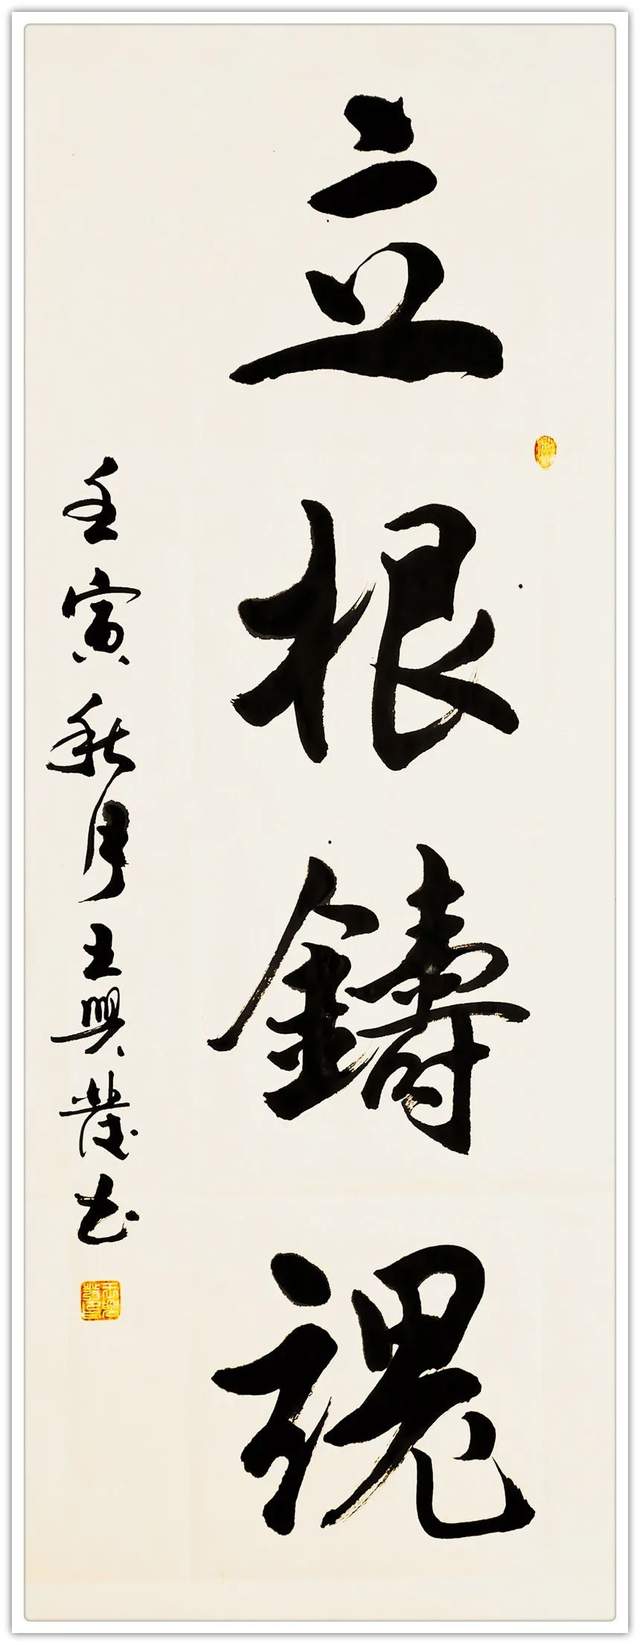 立根鑄魂
壬寅秋月王興茂书